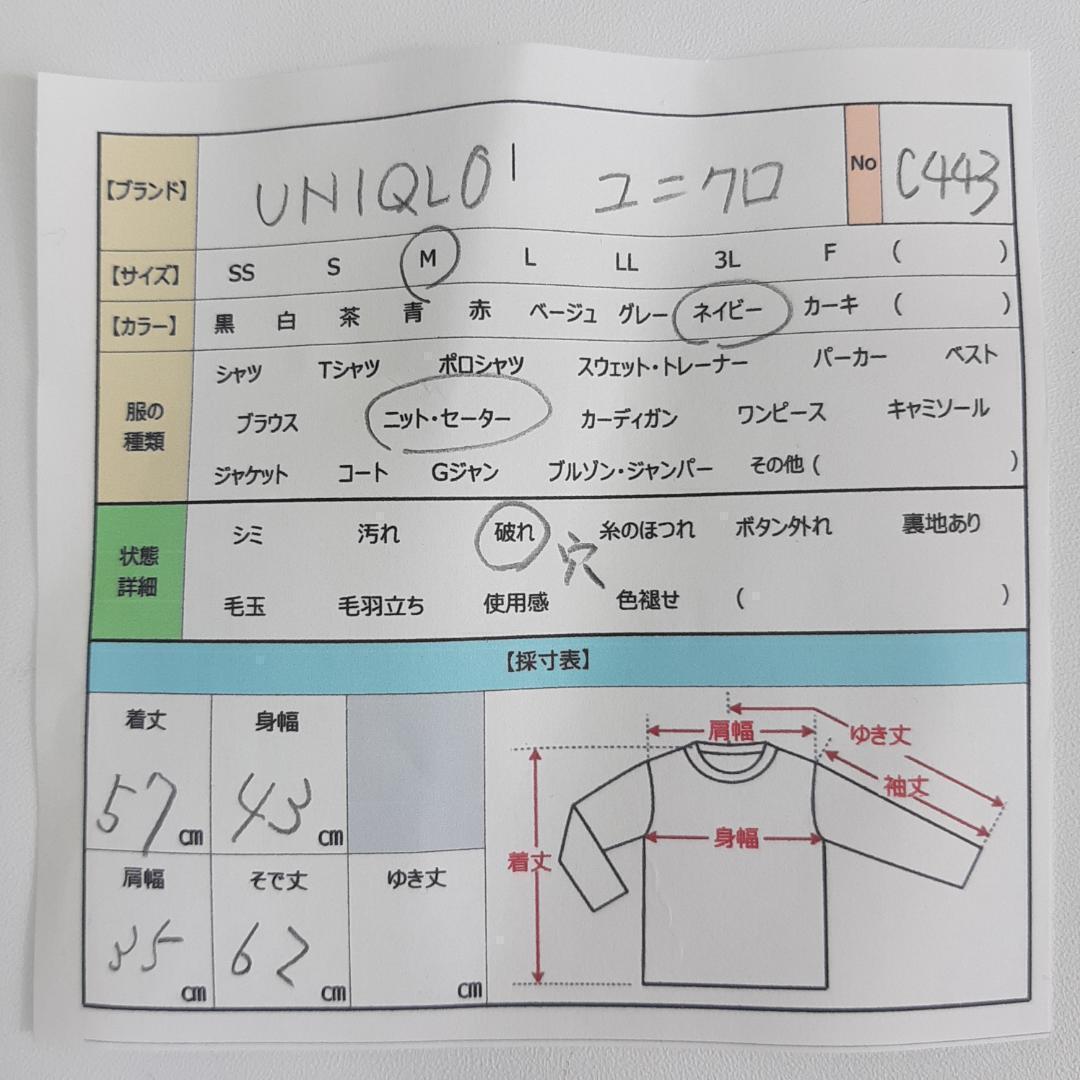 【ブランド】 UNIQLO ユニクロ No C443
【サイズ】 SS S M L LL 3L F ( )
【カラー】 黒 白 茶 青 赤 ベージュ グレー ネイビー カーキ ( )
服の
種類
シャツ Tシャツ ポロシャツ スウェット・トレーナー パーカー ベスト
ブラウス ニット・セーター カーディガン ワンピース キャミソール
ジャケット コート Gジャン ブルゾン・ジャンパー その他 ( )
状態
詳細
シミ 汚れ 破れ 穴 糸のほつれ ボタン外れ 裏地あり
毛玉 毛羽立ち 使用感 色褪せ ( )
【採寸表】
着丈 身幅
57 cm 43 cm
肩幅 そで丈 ゆき丈
35 cm 62 cm cm
肩幅
ゆき丈
袖丈
身幅
着丈